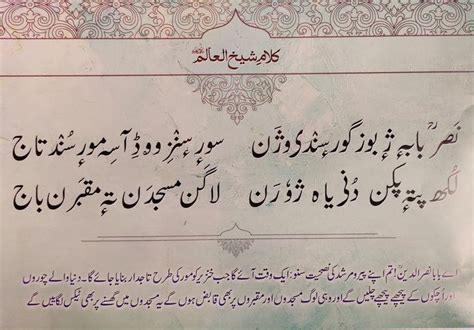 کلامِ شیخ العالمؒ
نصر بابہٕ ژٕ بوز گور سندی وژن سور سنز ووڈِ آسہِ مور سُند تاج
لُکھ پتہٕ پکن دُنی یاہ ژوٗرن لاگن مسجدن تہٕ مقبرن باج
اے بابا نصر الدین! تم اپنے پیر و مرشد کی نصیحت سنو: ایک وقت آئے گا جب خنزیر کو مور کی طرح تاجدار بنایا جائے گا۔ دنیا والے چوروں
اور اُچکوں کے پیچھے پیچھے چلیں گے اور وہی لوگ مسجدوں اور مقبروں پر بھی قابض ہوں گے یہ مسجدوں میں گھسنے پر بھی ٹیکس لگائیں گے